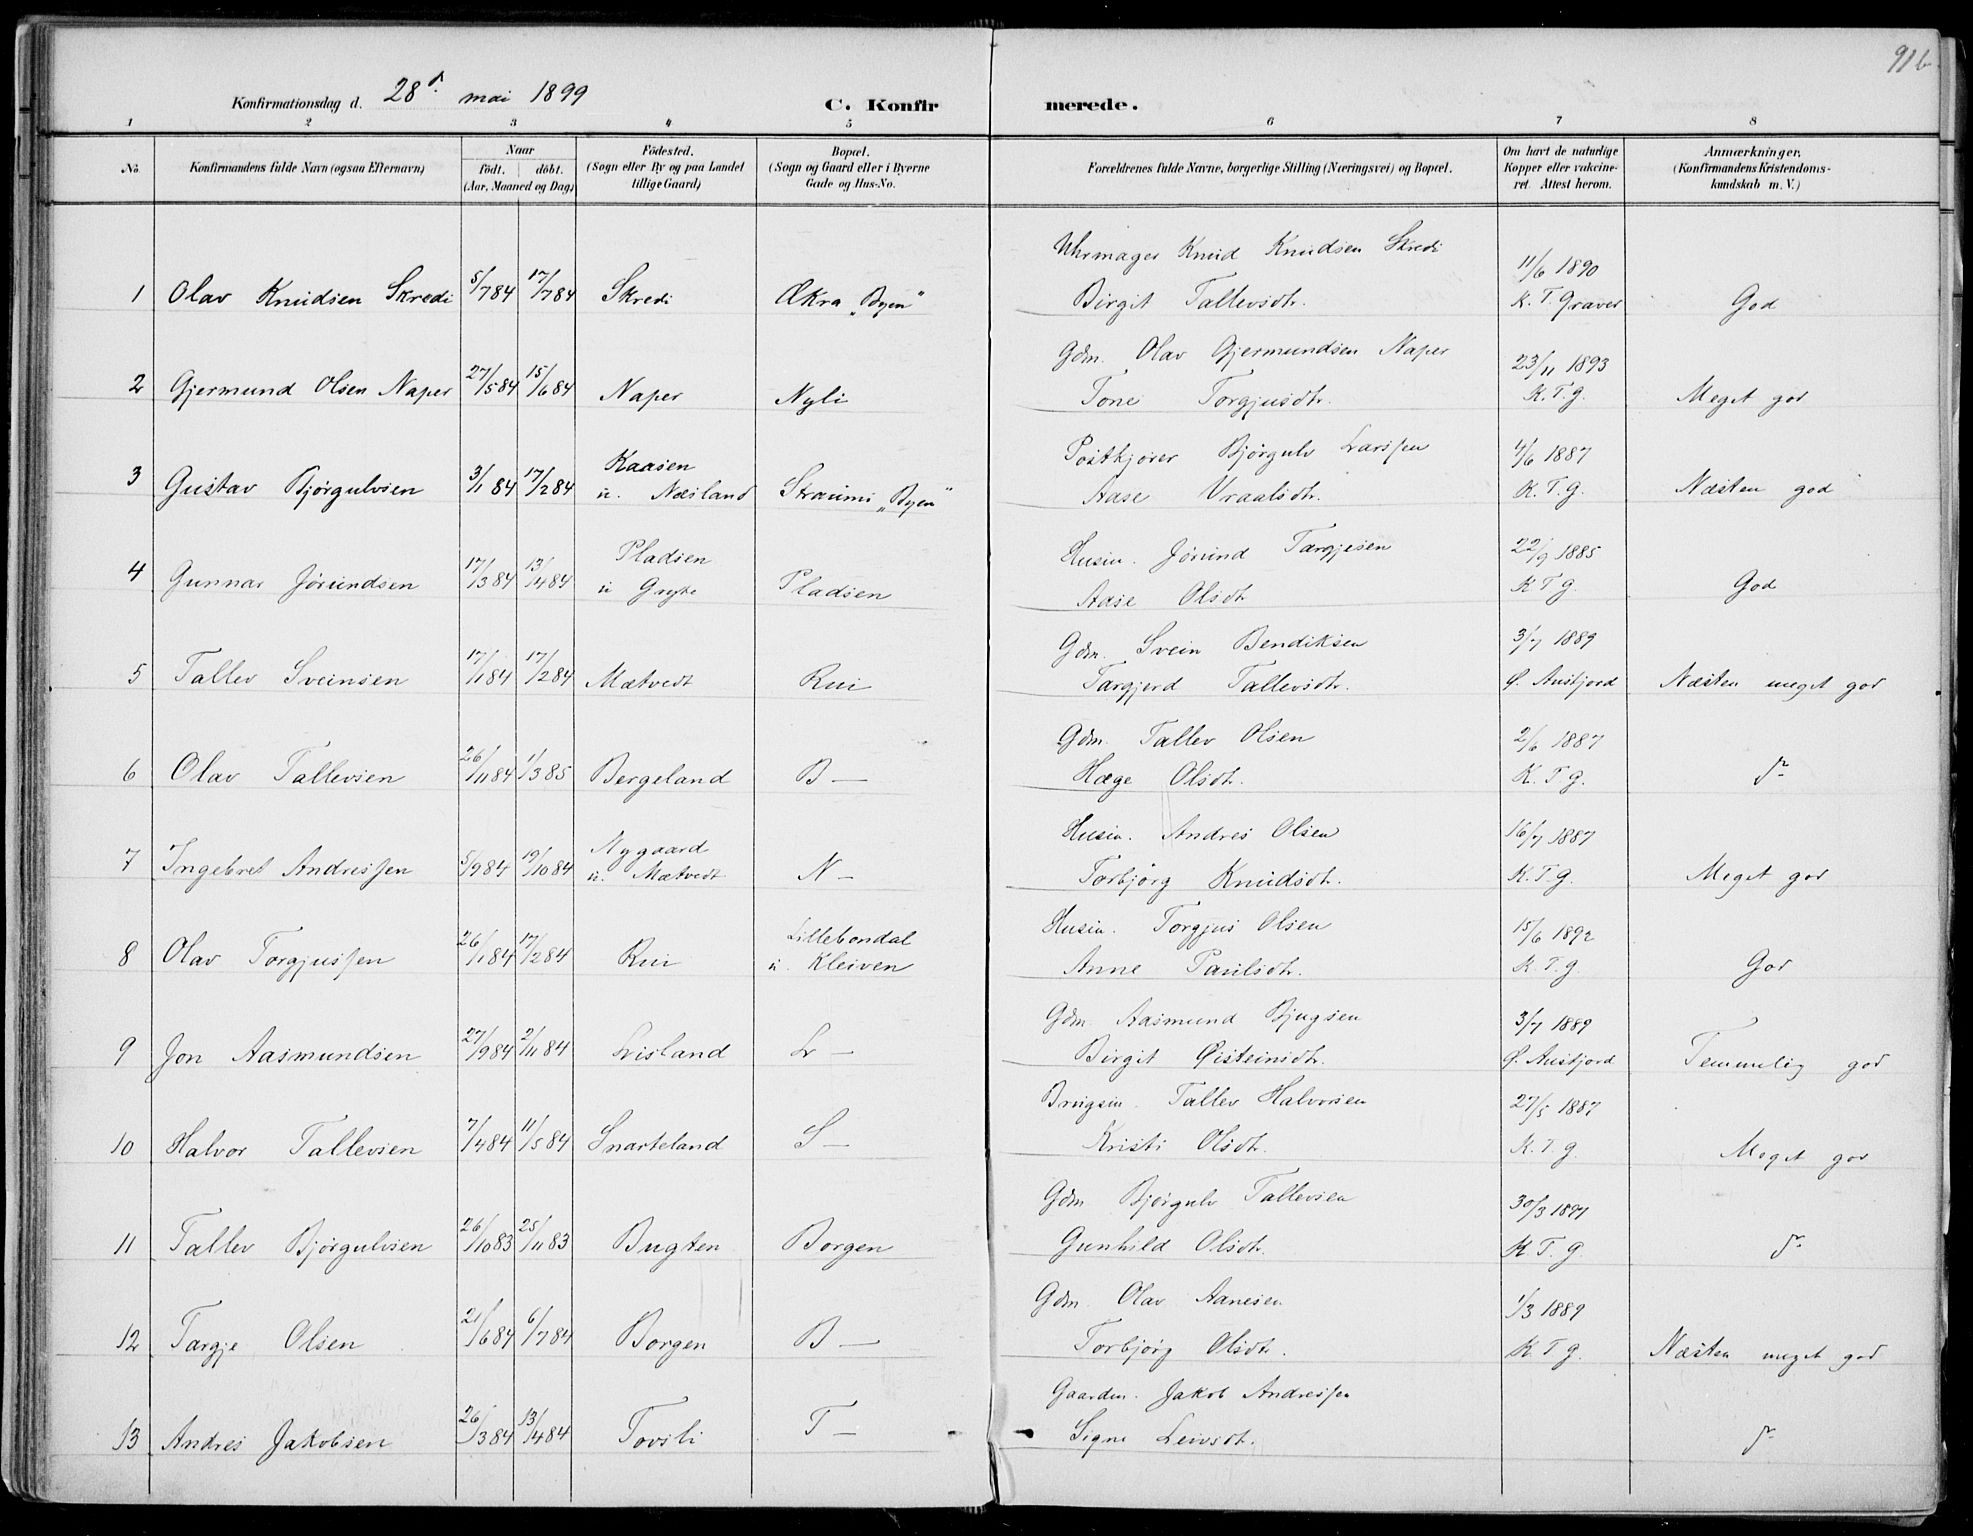 91b
Konfirmationsdag d. 28d. mai 1899
C. Konfirmerede.
1 2 3 4 5 6 7 8
No. Konfirmandens fulde Navn (ogsaa Efternavn) Naar født. døbt. (Aar, Maaned og Dag) Fødested. (Sogn eller By og paa Landet tillige Gaard) Bopæl. (Sogn og Gaard eller i Byerne Gade og Hus-No. Forældrenes fulde Navne, borgerlige Stilling (Næringsvei) og Bopæl. Om havt de naturlige Kopper eller vakcineret. Attest herom. Anmærkninger, (Konfirmandens Kristendomskundskab m. V.)
Uhrmager Knud Knudsen Skredi 11/6 1890
1 Olav Knudsen Skredi 5/7 84 17/7 84 Skredi Økra „Byen" Birgit Tallevsdtr. K. T. Graver God
Gdm. Olav Gjermundsen Naper 23/11 1893
2 Gjermund Olsen Naper 27/5 84 15/6 84 Naper Nyli Tone Torgjusdtr. K. T. G. Meget god
Kaasen Postkjører Bjørgulv Larssen 4/6 1887
3 Gustav Bjørgulvsen 3/1 84 17/2 84 u. Næsland Straumi „Byen" Aase Vraalsdtr. K. T. G. Næsten god
Pladsen Husm. Jørund Targjesen 22/9 1885
4 Gunnar Jørundsen 17/3 84 13/4 84 u Gryte Pladsen Aase Olsdtr K T G. God
Gdm. Svein Bendiksen 3/7 1889
5 Tallev Sveinsen 17/1 84 17/2 84 Mætvedt Rui Targjerd Tallevsdtr. Ø. Austjord Næsten meget god
Gdm. Tallev Olsen 2/6 1887
6 Olav Tallevsen 26/11 84 1/3 85 Bergeland B — Hæge Olsdtr. K. T. G. do
Nygaard Husm. Andres Olsen 16/7 1887
7 Ingebret Andressen 5/9 84 19/10 84 u. Mætvedt N — Torbjørg Knudsdtr. K. T. G. Meget god
Lillebondal Husm. Torgjus Olsen 15/6 1892
8 Olav Torgjussen 26/1 84 17/2 84 Rui u. Kleiven Anne Paulsdtr. K. T. G. God
Gdm. Aasmund Bjugsen 3/7 1889
9 Jon Aasmundsen 27/9 84 2/11 84 Lvisland Lv — Birgit Øisteinsdtr. Ø. Austjord Temmelig god
Brugsm. Tallev Halvorsen 27/5 1887
10 Halvor Tallevsen 7/4 84 11/5 84 Snarteland S — Kristi Olsdtr. K. T. G. Meget god
Gdm Bjørgulv Tallevsen 30/3 1897
11 Tallev Bjørgulvsen 26/10 83 25/11 83 Bugten Borgen Gunhild Olsdtr. K. T. G. do
Gdm. Olav Aanesen 1/3 1889
12 Targje Olsen 21/6 84 6/7 84 Borgen B — Torbjørg Olsdtr. K T G. Næsten meget god
Gaardm. Jakob Andressen
13 Andres Jakobsen 26/3 84 13/4 84 Tovsli T — Signe Leivsdtr. do